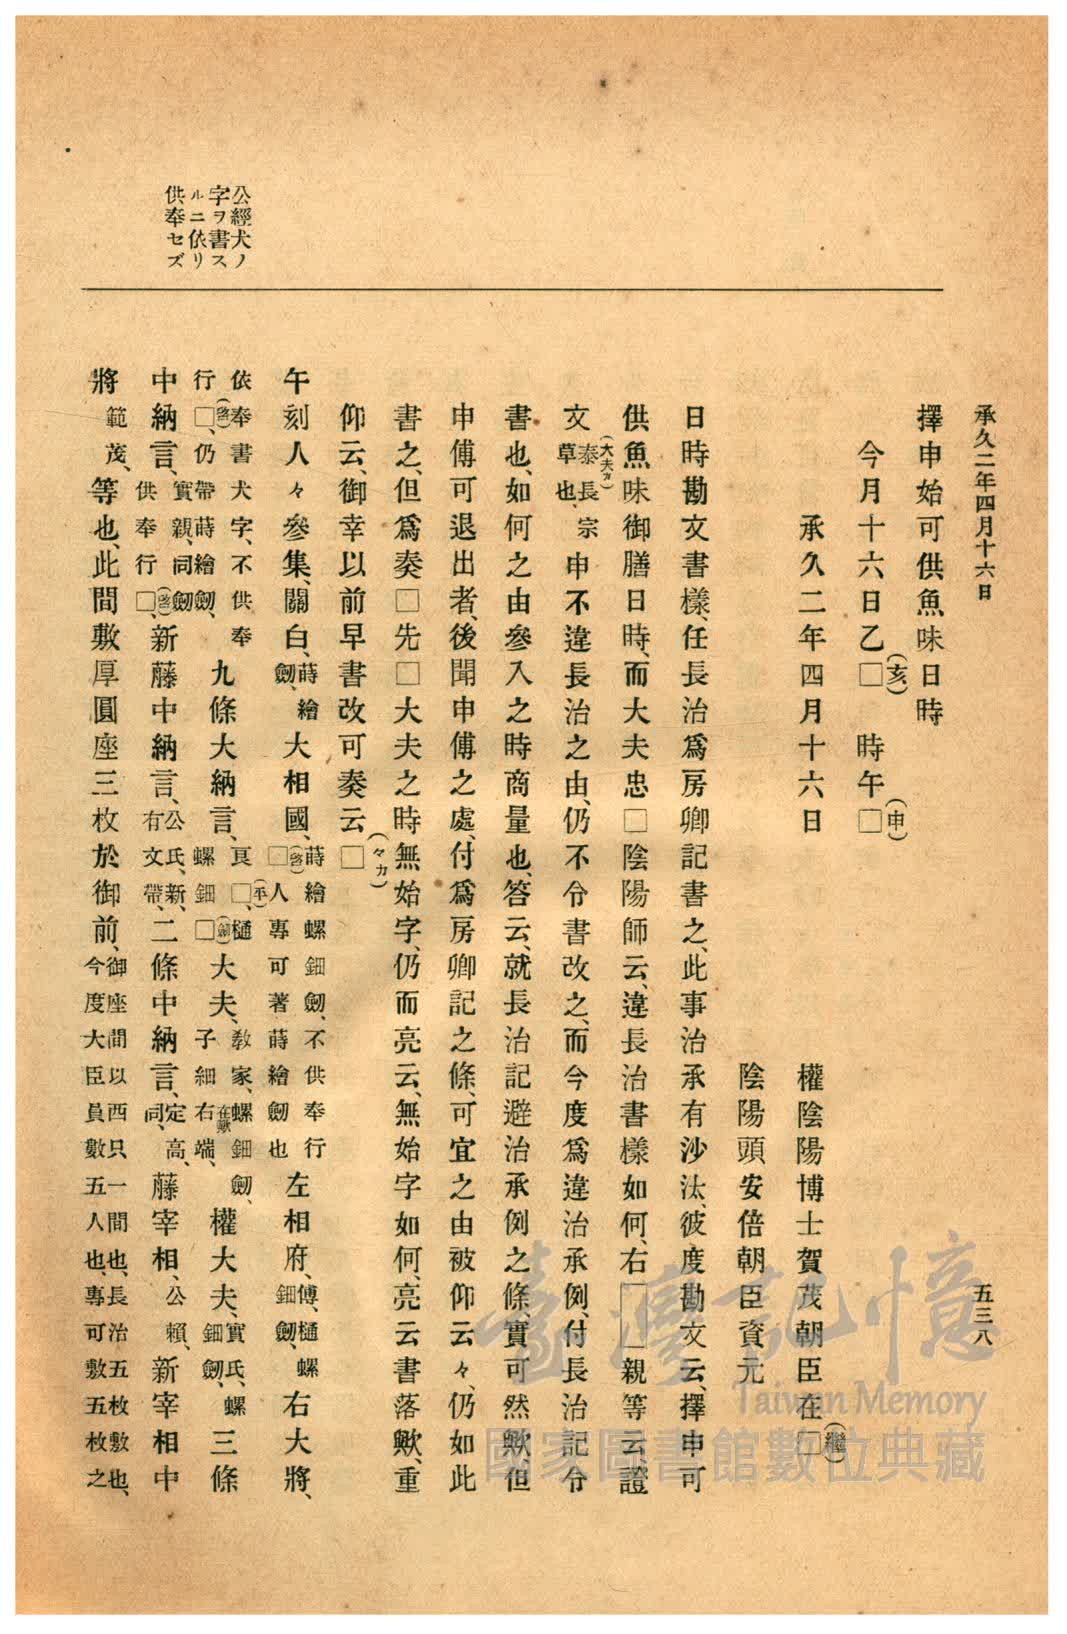 承久二年四月十六日
五三八
公經犬ノ
字ヲ書ス
ルニ依リ
供奉セズ
擇申始可供魚味日時
今月十六日乙□(亥)　時午□(申)
承久二年四月十六日
權陰陽博士賀茂朝臣在□(繼)
陰陽頭安倍朝臣資元
日時勘文書樣、任長治爲房卿記書之、此事治承有沙汰、彼度勘文云、擇申可
供魚味御膳日時、而大夫忠□陰陽師云、違長治書樣如何、右□親等云、證
文(大夫カ)泰長宗草也、申不違長治之由、仍不令書改之、而今度爲違治承例、付長治記令
書也、如何之由參入之時商量也、答云、就長治記避治承例之條、實可然歟、但
申傅可退出者、後聞申傅之處、付爲房卿記之條、可宜之由被仰云々、仍如此
書之、但爲奏□先□大夫之時無始字、仍而亮云、無始字如何、亮云書落歟、重
仰云、御幸以前早書改可奏云□(々カ)
午刻人々參集、關白、蒔繪劔、大相國、蒔繪螺鈿劔、不供奉行□人專可著蒔繪劔也左相府、傅、樋螺鈿劔、右大將、
依奉書犬字、不供奉行□、仍帶蒔繪劔、九條大納言、良□(平)、樋螺鈿□(劔)大夫、教家、螺鈿劔、子細右在歟端、權大夫、實氏、螺鈿劔、三條
中納言、實親、同劔、供奉行□、新藤中納言、公氏、新、有文帶、二條中納言、定高、同、藤宰相、公賴、新宰相中
將範茂、等也、此間敷厚圓座三枚於御前、御座間以西只一間也、長治五枚敷也、今度大臣員數五人也、專可敷五枚之
臺灣記憶
Taiwan Memory
國家圖書館數位典藏